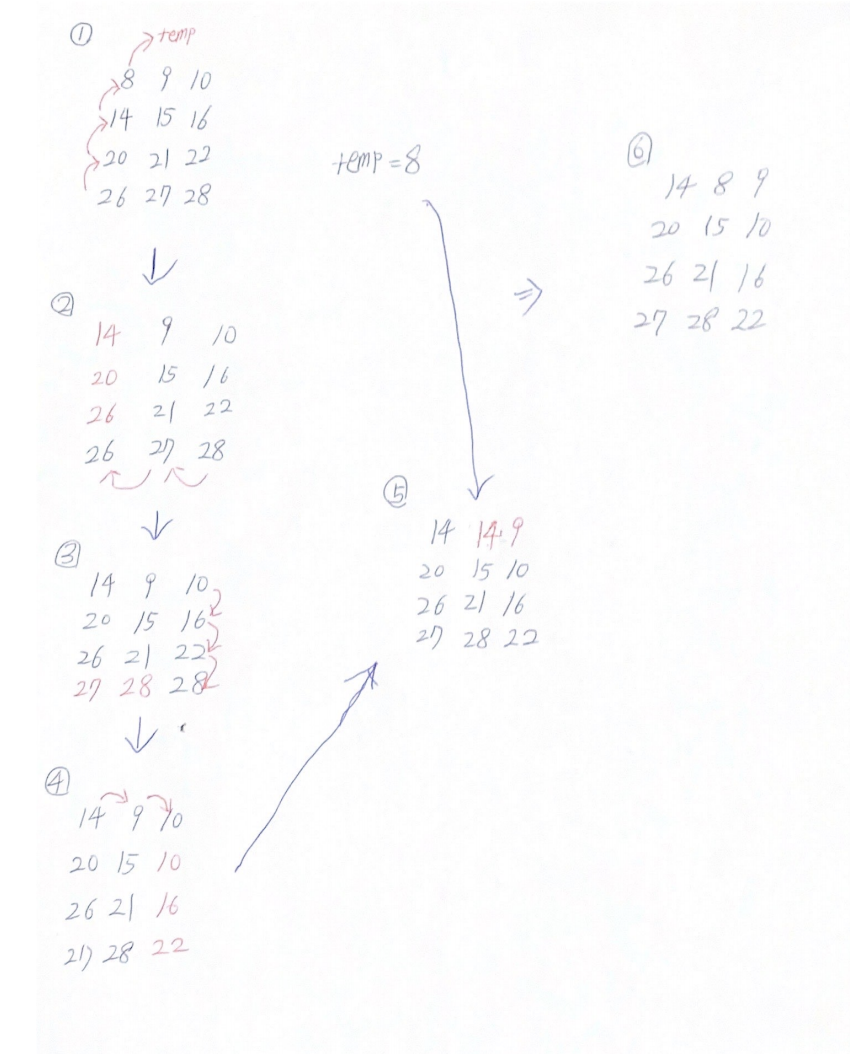 ①
temp
8 9 10
14 15 16
20 21 22
26 27 28
temp = 8
②
14 9 10
20 15 16
26 21 22
26 27 28
③
14 9 10
20 15 16
26 21 22
27 28 28
④
14 9 10
20 15 10
26 21 16
27 28 22
⑤
14 14 9
20 15 10
26 21 16
27 28 22
⇒
⑥
14 8 9
20 15 10
26 21 16
27 28 22